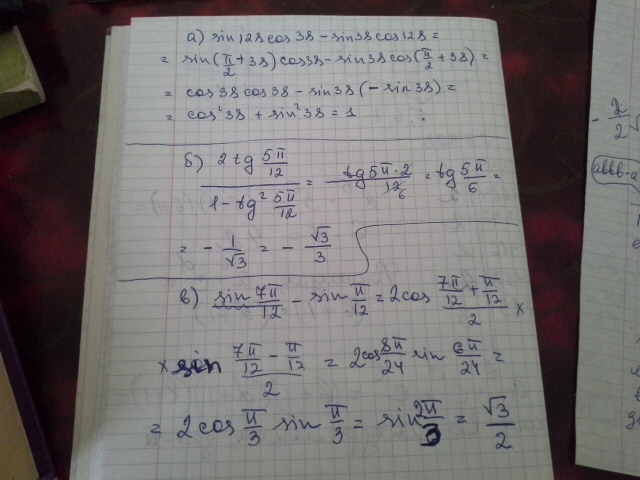 а) sin128cos38 - sin38cos128 =
= sin(π/2 + 38)cos38 - sin38cos(π/2 + 38) =
= cos38cos38 - sin38(-sin38) =
= cos²38 + sin²38 = 1
б) (2tg 5π/12)/(1 - tg² 5π/12) = tg 5π·2/12 6 = tg 5π/6 =
= - 1/√3 = - √3/3
в) sin 7π/12 - sin π/12 = 2cos (7π/12 + π/12)/2 ×
× sin (7π/12 - π/12)/2 = 2cos 8π/24 sin 6π/24 =
= 2cos π/3 sin π/3 = sin 2π/3 = √3/2